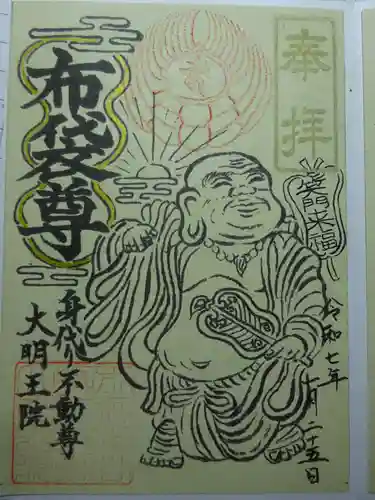 奉拝
笑門来福
布袋尊
身代り不動尊
大明王院
令和七年
七月二十五日